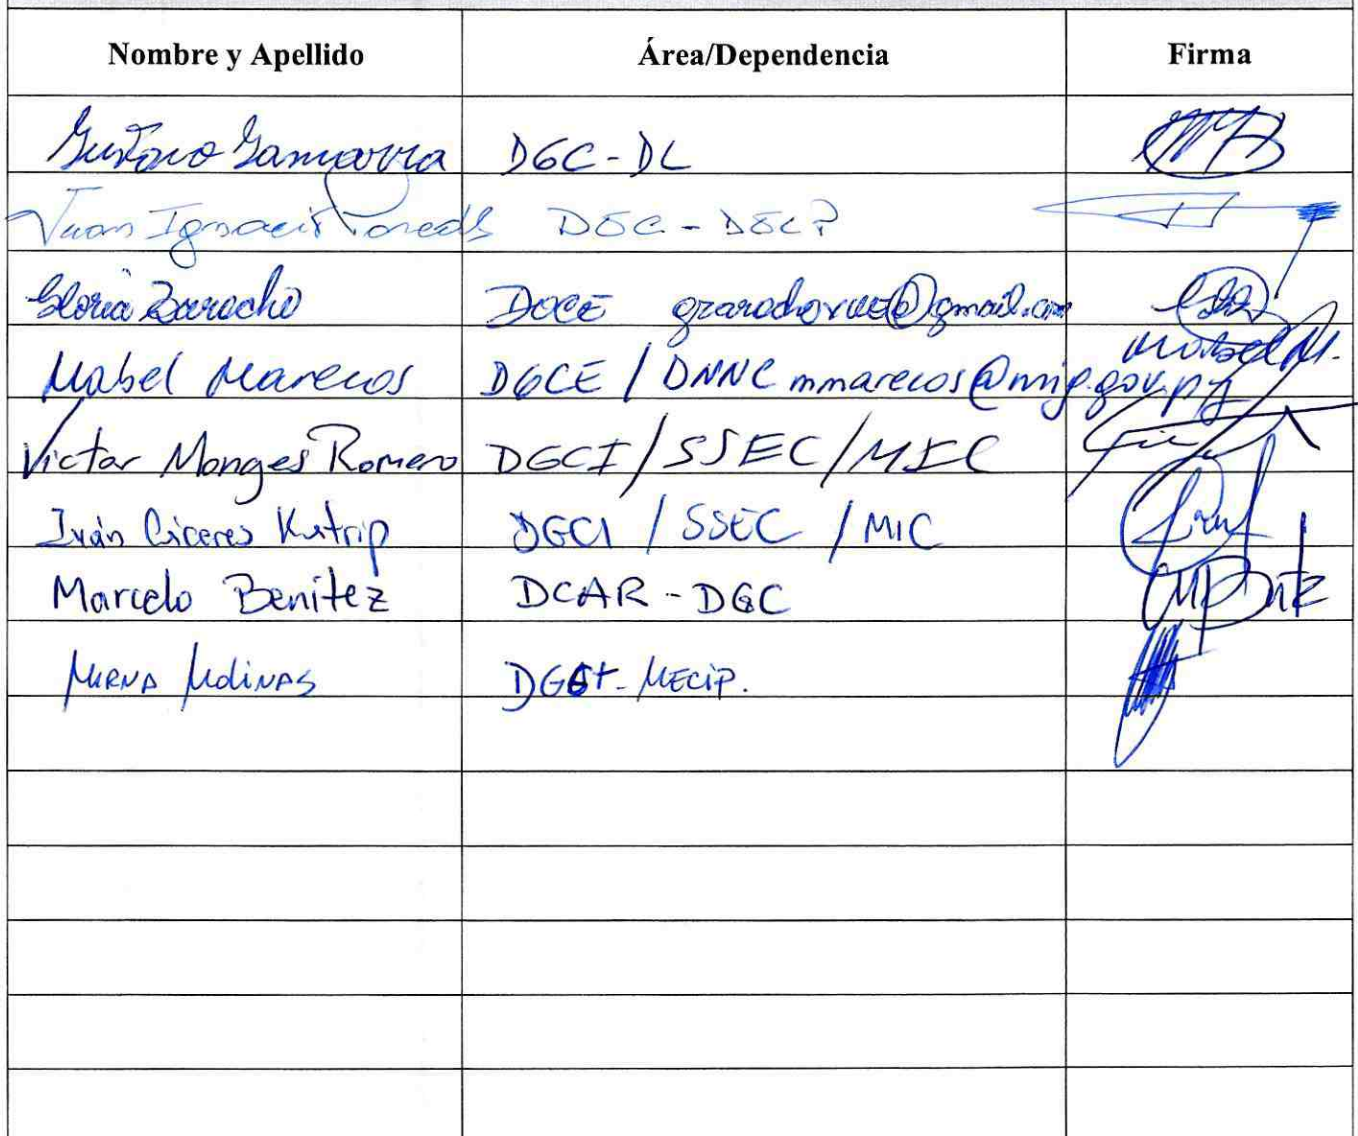 Nombre y Apellido Área/Dependencia Firma
Gustavo Gamarra DGC-DL
Juan Ignacio Paredes DGC-
Gloria Zarocho DGCE
Mabel Marecos DGCE / DNNC mmarecos@mip.gov.py Mabel M.
Victor Monges Romero DGCI/SSEC/MIC
Iván Cáceres Kutrip DGCI / SSEC / MIC
Marcelo Benítez DCAR-DGC
MIRNA MolinAS MECIP.